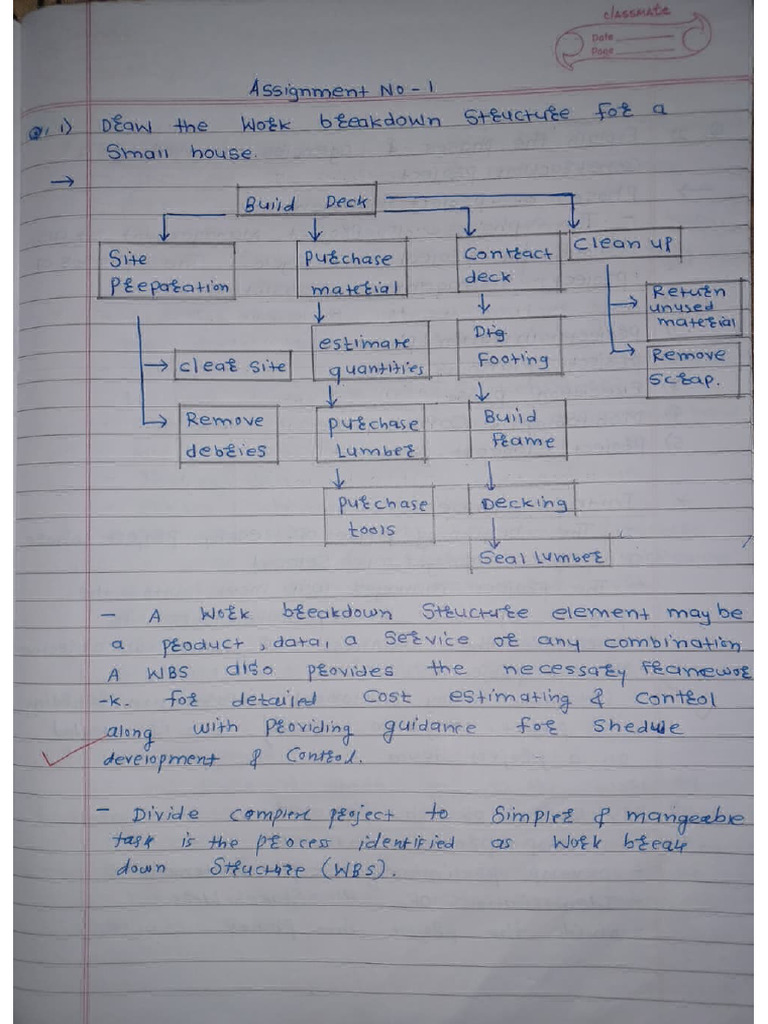 classmate
Date
Page
Assignment No - 1
Q. 1) Draw the Work breakdown Structure for a
Small house.
→
Build Deck
Site
Preparation
Purchase
material
Contract
deck
Clean up
clear site
Remove
debries
estimate
quantities
purchase
Lumber
purchase
tools
Dig
Footing
Build
frame
Decking
Seal Lumber
Return
unused
material
Remove
Scrap.
- A Work breakdown Structure element may be
a product, data, a Service or any combination
A WBS also provides the necessary framewor
-k. for detailed Cost estimating & Control
along with providing guidance for Shedule
development & Control.
- Divide complex project to Simpler & mangeable
task is the process identified as Work break
down Structure (WBS).